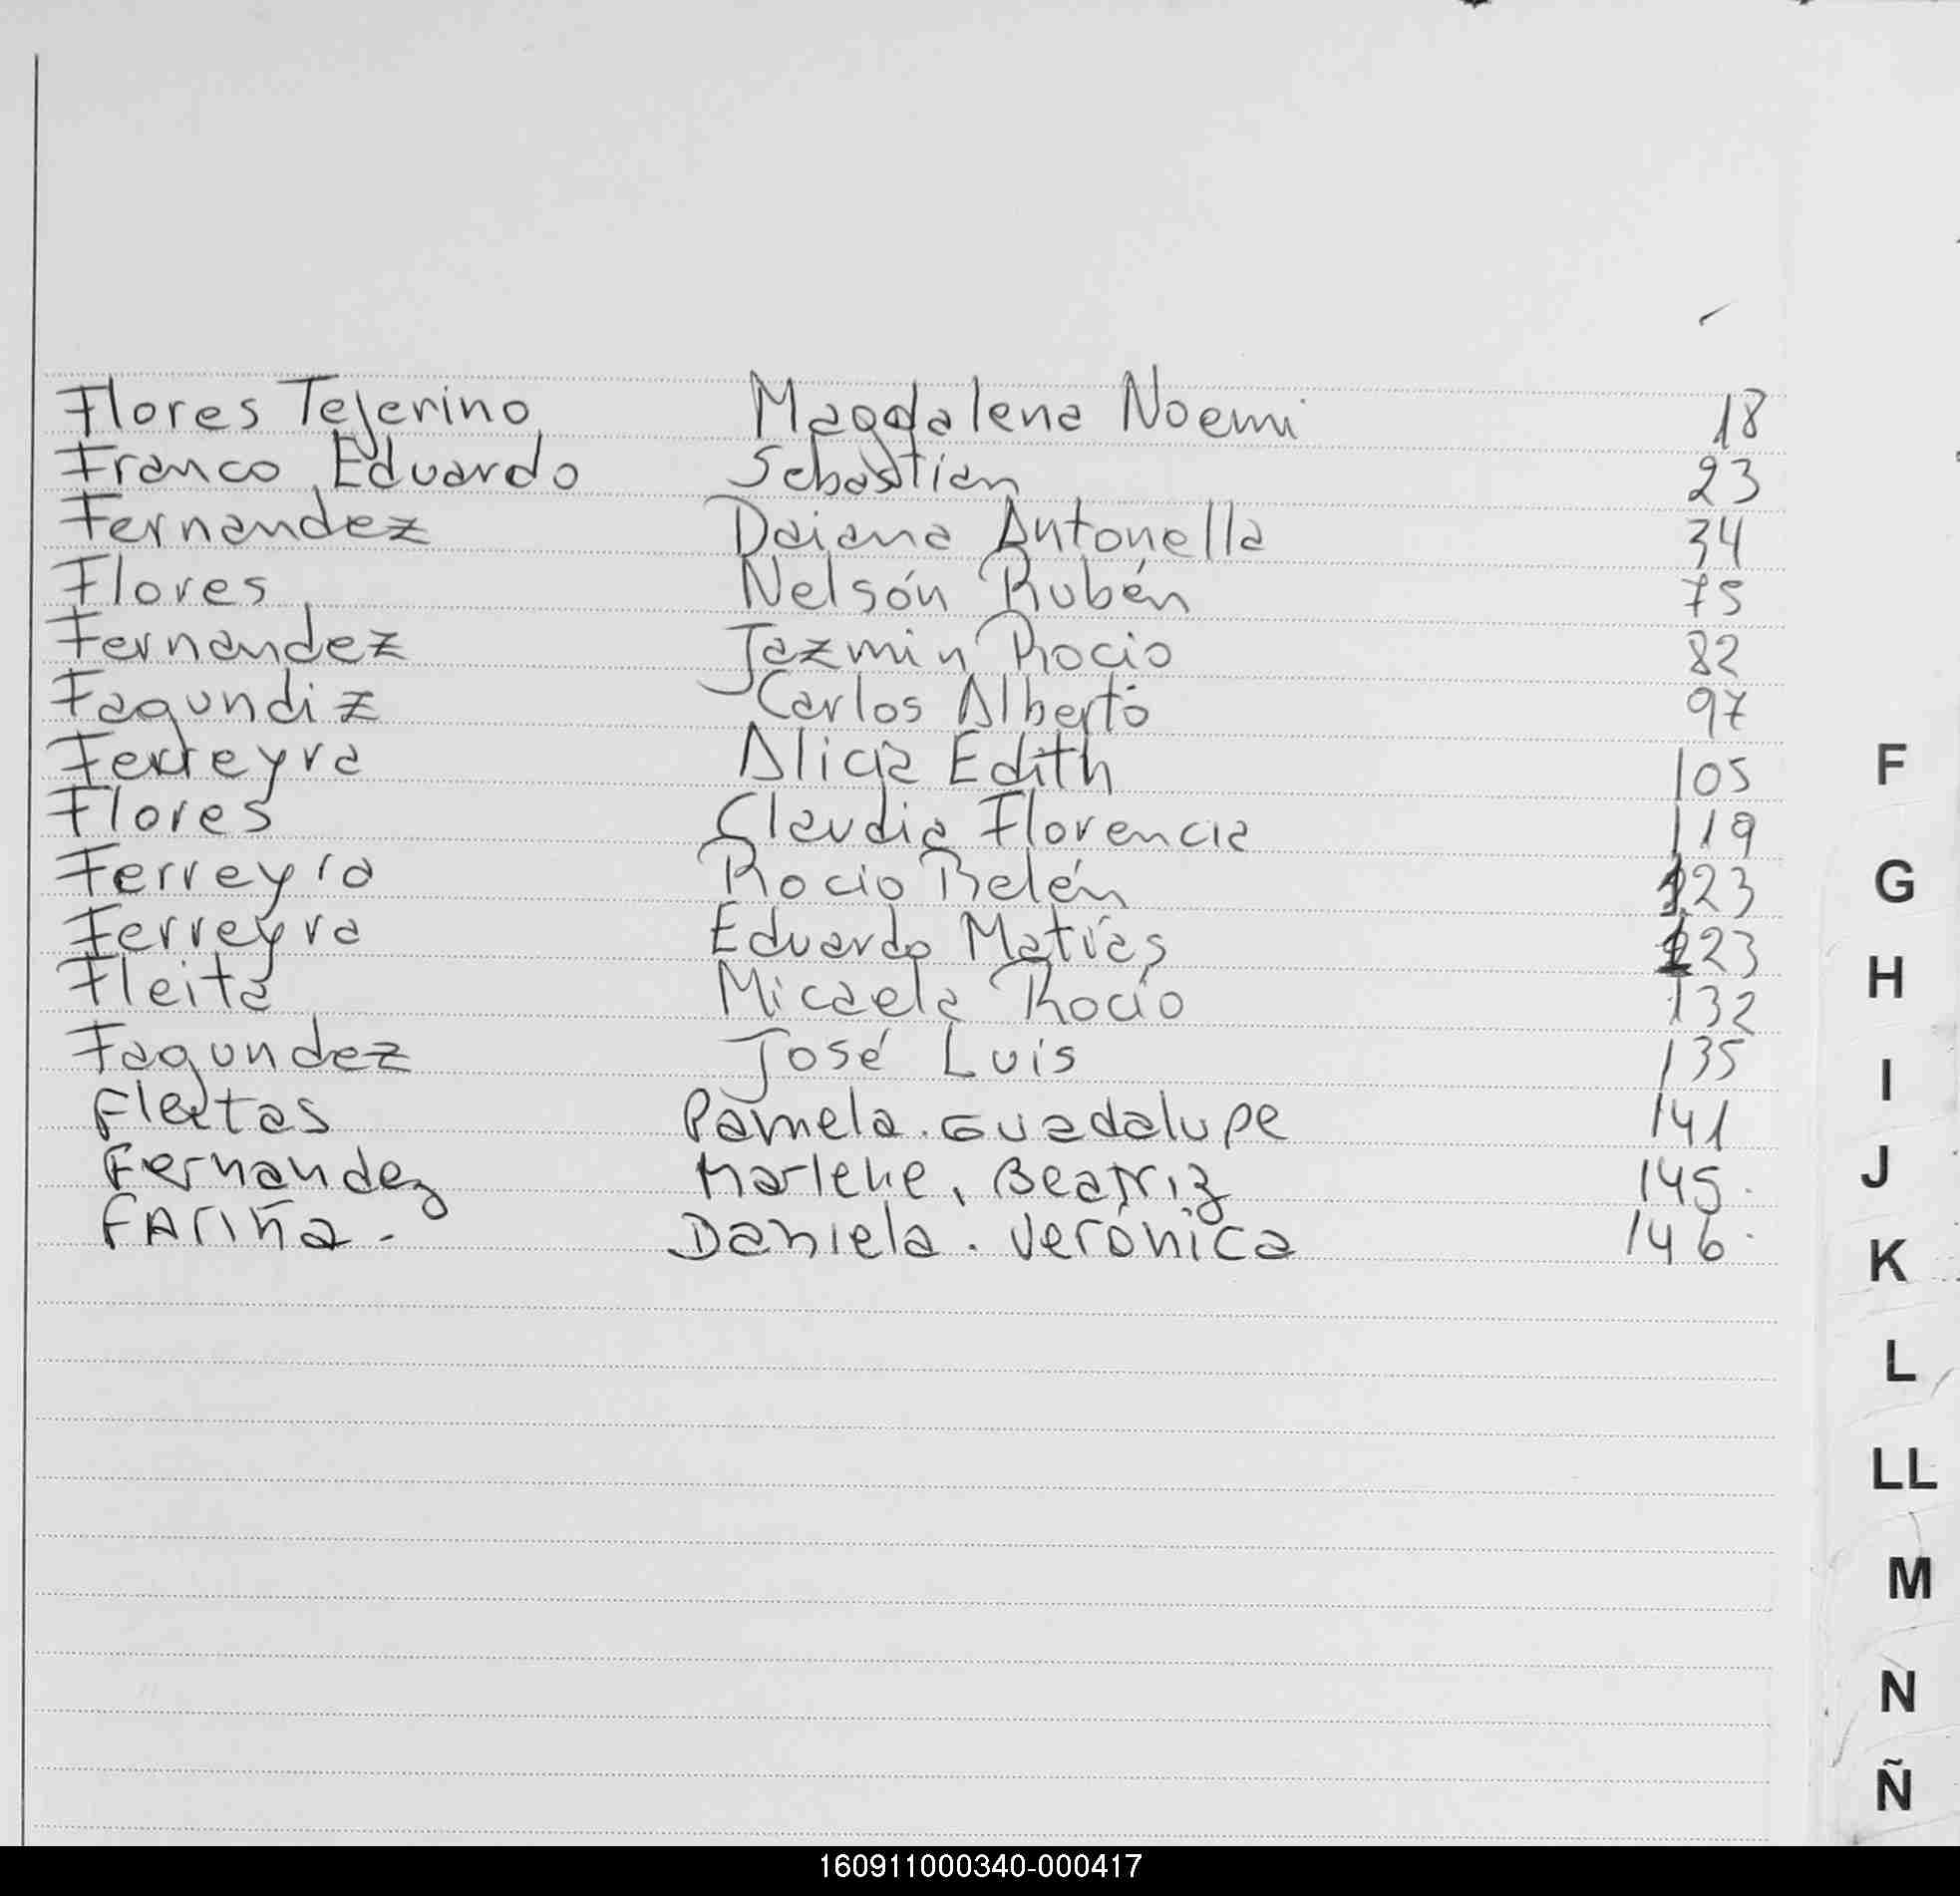 Flores Tejerino Magdalena Noemi 18
Franco Eduardo Sebastian 23
Fernandez Daiana Antonella 34
Flores Nelsón Rubén 75
Fernandez Jazmin Rocio 82
Fagundiz Carlos Alberto 97
Ferreyra Alicia Edith 105
Flores Claudia Florencia 119
Ferreyra Rocio Belén 123
Ferreyra Eduardo Matías 123
Fleita Micaela Rocío 132
Fagundez José Luis 135
Fleitas Pamela. Guadalupe 141
Fernandez Marlene, Beatriz 145.
FAriña - Daniela. Verónica 146.
F
G
H
I
J
K
L
LL
M
N
Ñ
160911000340-000417